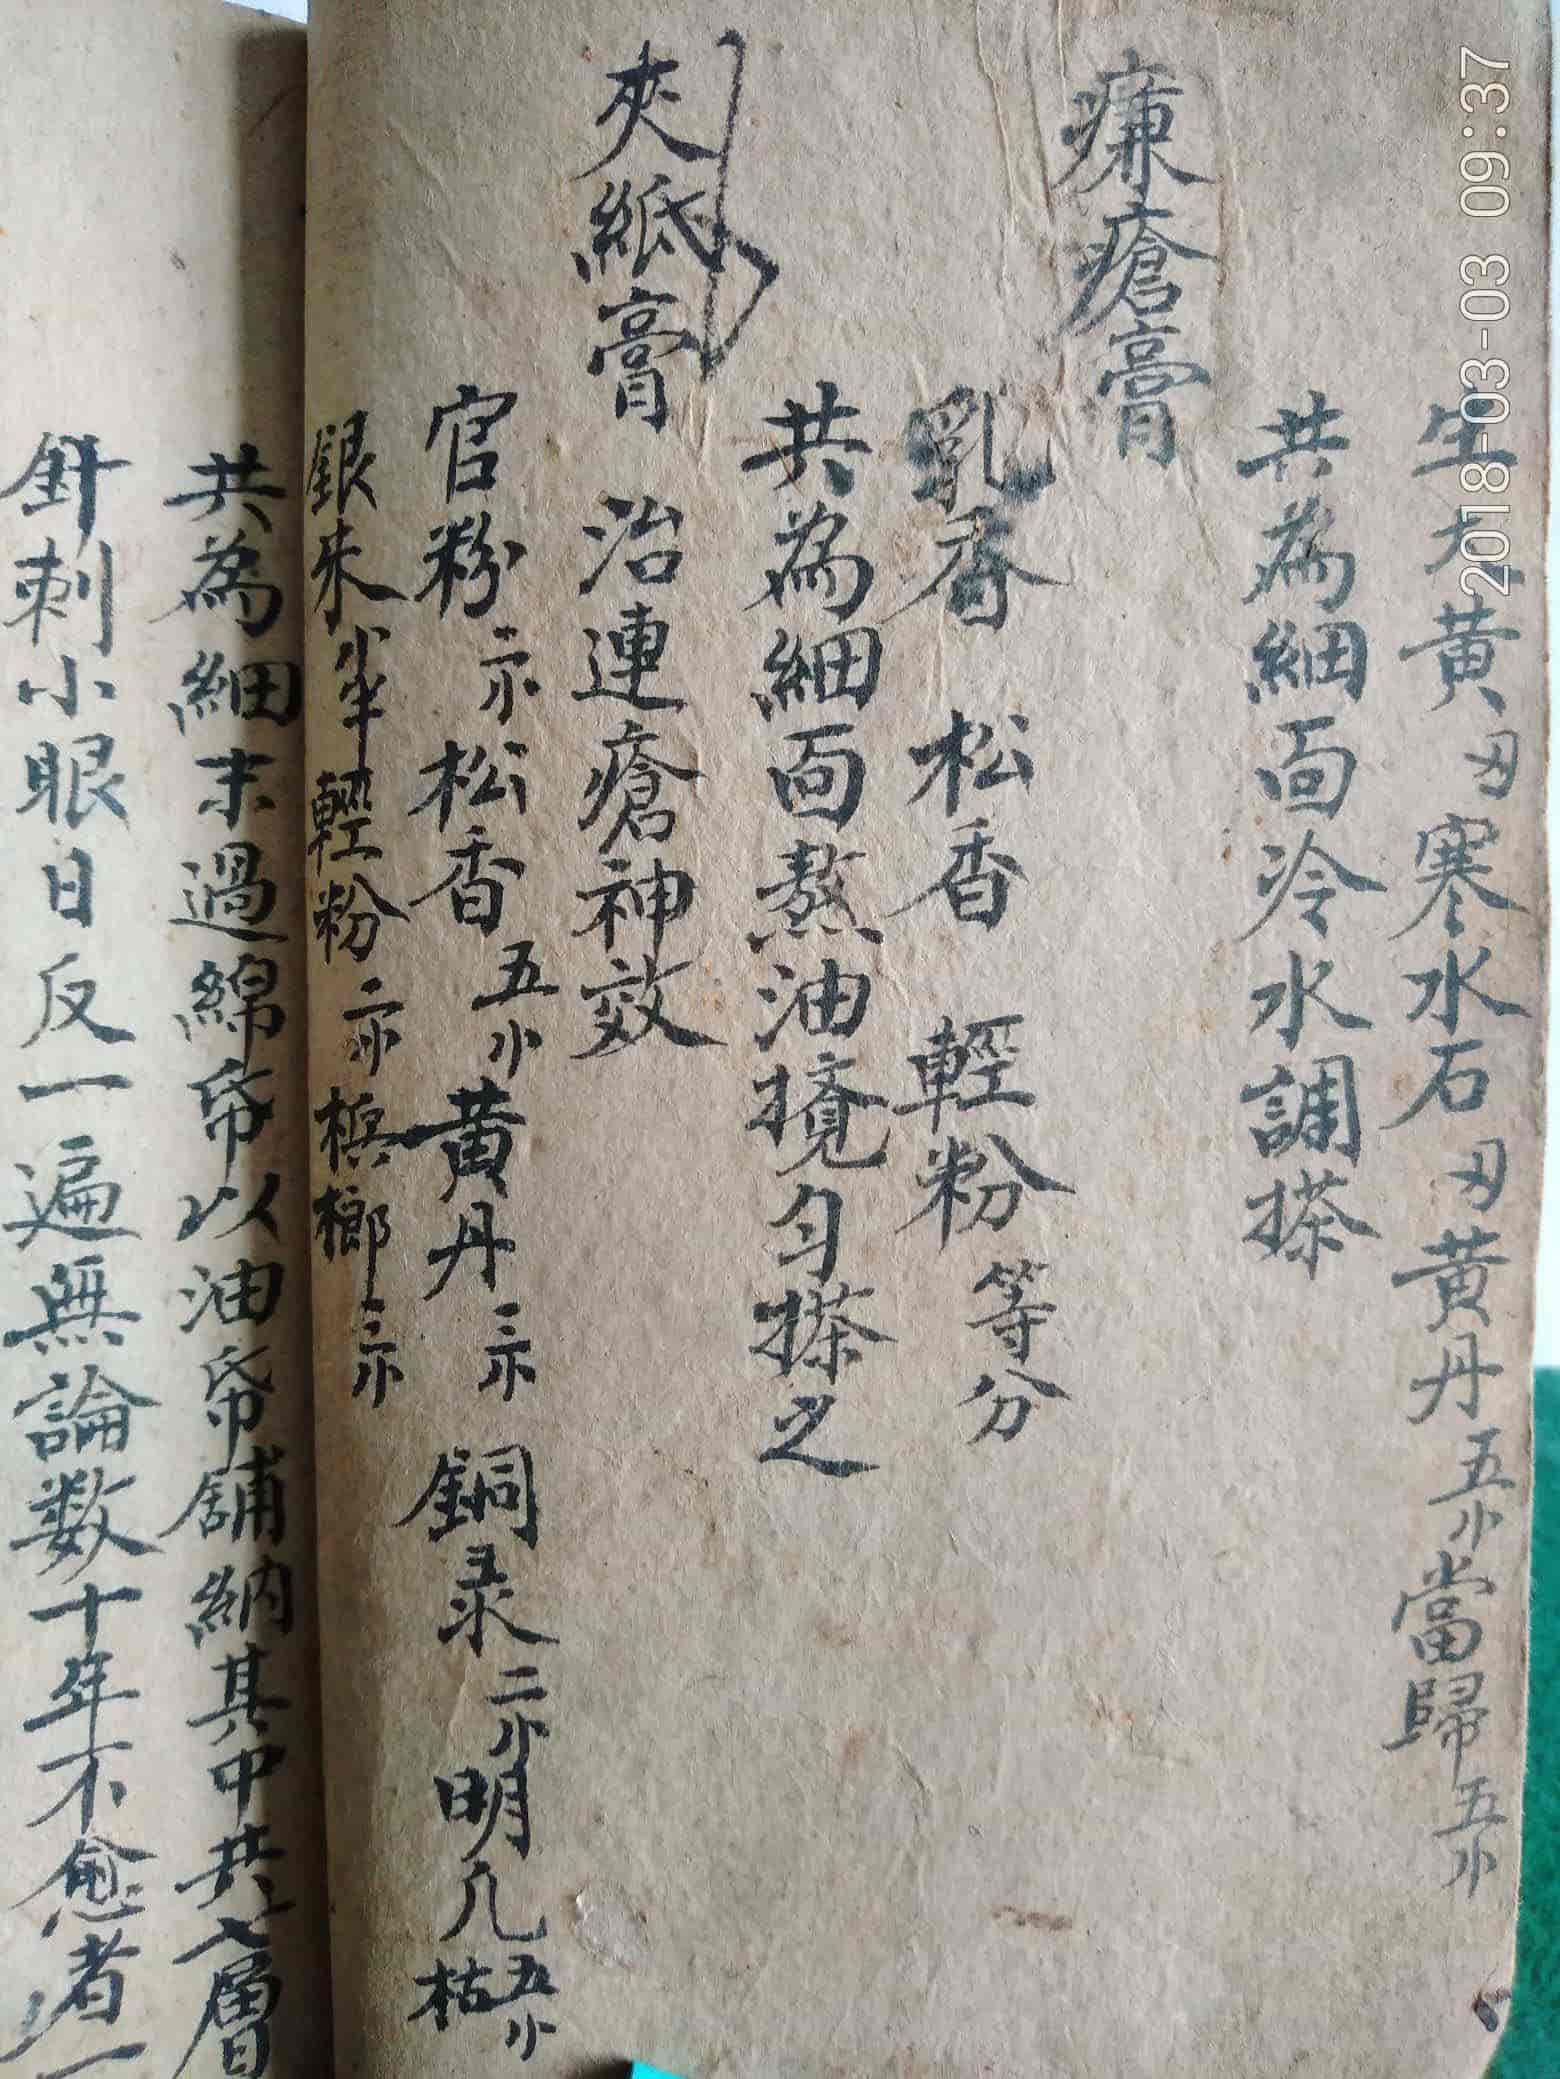 生大黄刄寒水石刄黄丹五小當歸五小
共為細面冷水調搽
㾾瘡膏
乳香 松香 輕粉等分
共為細面熬油攪匀搽之
夾紙膏 治連瘡神效
官粉二小松香五小黄丹三小 銅录二小明凡枯五小
銀朱小半輕粉二小梹榔三小
共為細末過綿帋以油帋舖納其中共七層
針刺小眼日反一遍無論数十年不愈者一
2018-03-03 09:37